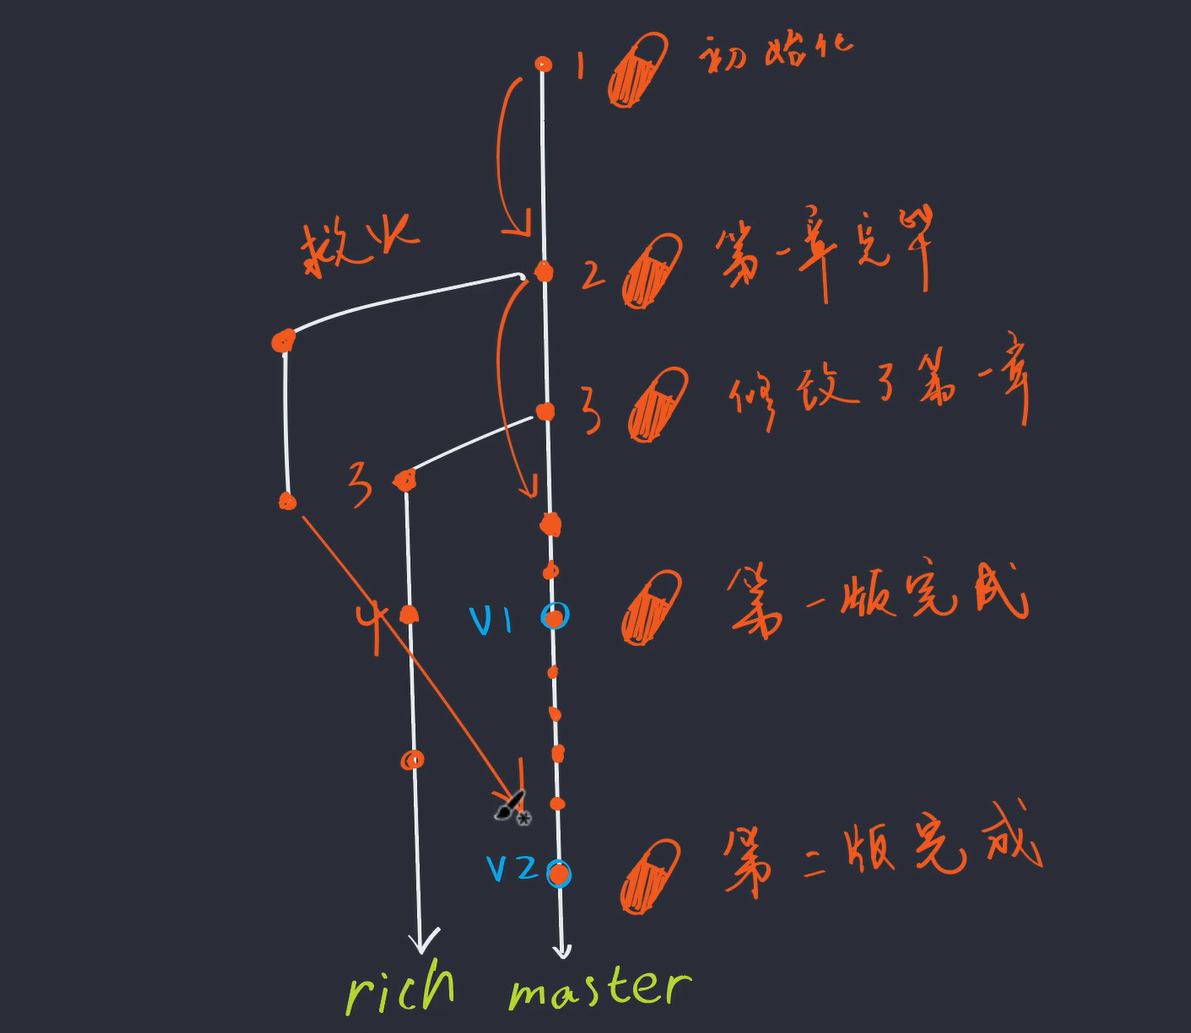 1 初始化
救火
2 第一章完毕
3 修改了第一章
3
4
V1 第一版完成
V2 第二版完成
rich master